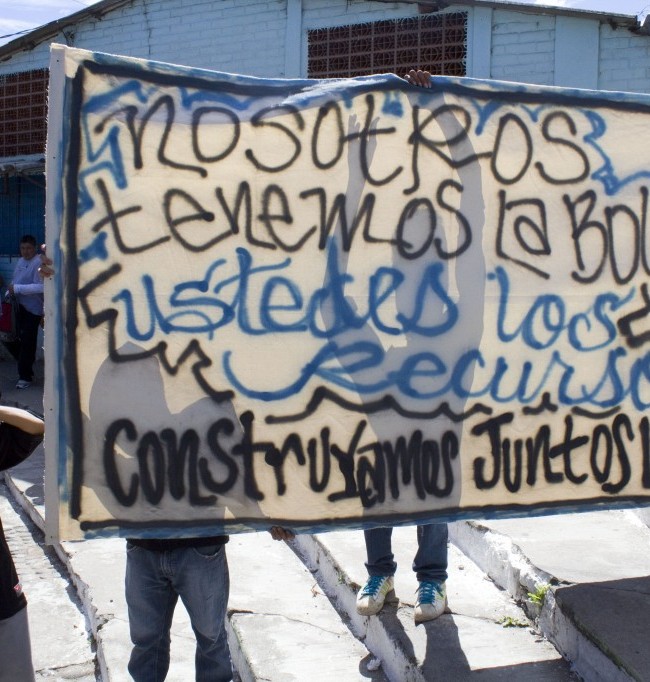 nosotros
tenemos la
ustedes los
Recurso
Construyamos Juntos